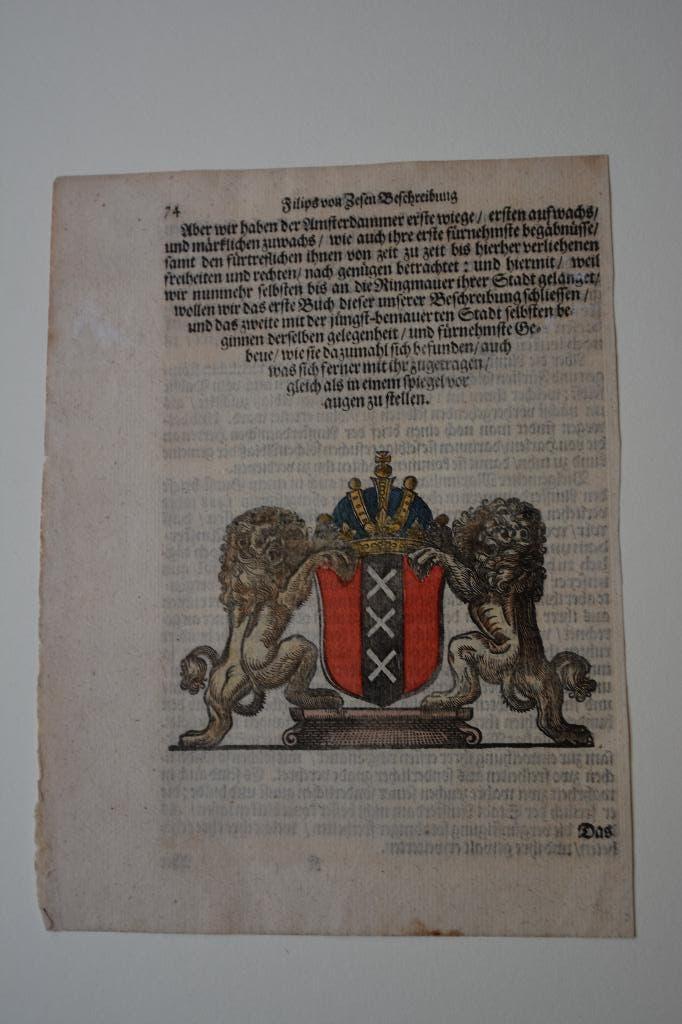 74
Filips von Zesen Beschreibung
Aber wir haben der Amsterdammer erste wiege/ ersten aufwachs/
und märklichen zuwachs/ wie auch ihre erste fürnehmste begäbnüsse/
samt den fürtreflichen ihnen von zeit zu zeit bis hierher verliehenen
freiheiten und rechten/ nach genügen betrachtet: und hiermit/ weil
wir nunmehr selbsten bis an die Ringmauer ihrer Stadt gelanget/
wollen wir das erste Buch dieser unserer Beschreibung schliessen/
und das zweite mit der jüngst-bemauerten Stadt selbsten be-
ginnen derselben gelegenheit/ und fürnehmste Ge-
beue/ wie sie dazumahl sich befunden/ auch
was sich ferner mit ihr zugetragen/
gleich als in einem spiegel vor
augen zu stellen.
Das